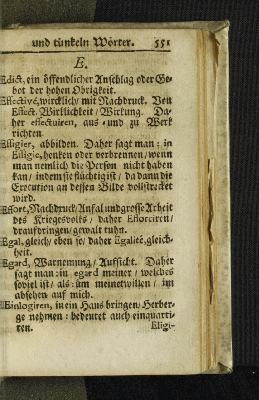 und tunkeln Wörter. 551
E.
Edict, ein öffendlicher Anschlag oder Ge-
bot der hohen Obrigkeit.
Effective, wircklich/ mit Nachdruck. Von
Effect. Wirklichkeit / Wirkung. Da-
her effectuiren, aus- und zu Werk
richten
Effigier, abbilden. Daher sagt man: in
Effigie, henken oder verbrennen / wenn
man nemlich die Person nicht haben
kan / indem sie flüchtig ist / da dann die
Execution an dessen Bilde vollstrecket
wird.
Effort, Nachdruck / Anfal und grosse Arbeit
des Kriegesvolks / daher Efforciren /
drauf dringen / gewalt tuhn.
Egal, gleich / eben so / daher Egalité, gleich-
heit.
Egard, Warnemung / Aufsicht. Daher
sagt man: in egard meiner / welches
soviel ist / als: üm meinetwillen / im
absehen auf mich.
Einlogiren, in ein Haus bringen / Herber-
ge nehmen: bedeutet auch einquarti-
ren. Eligi-